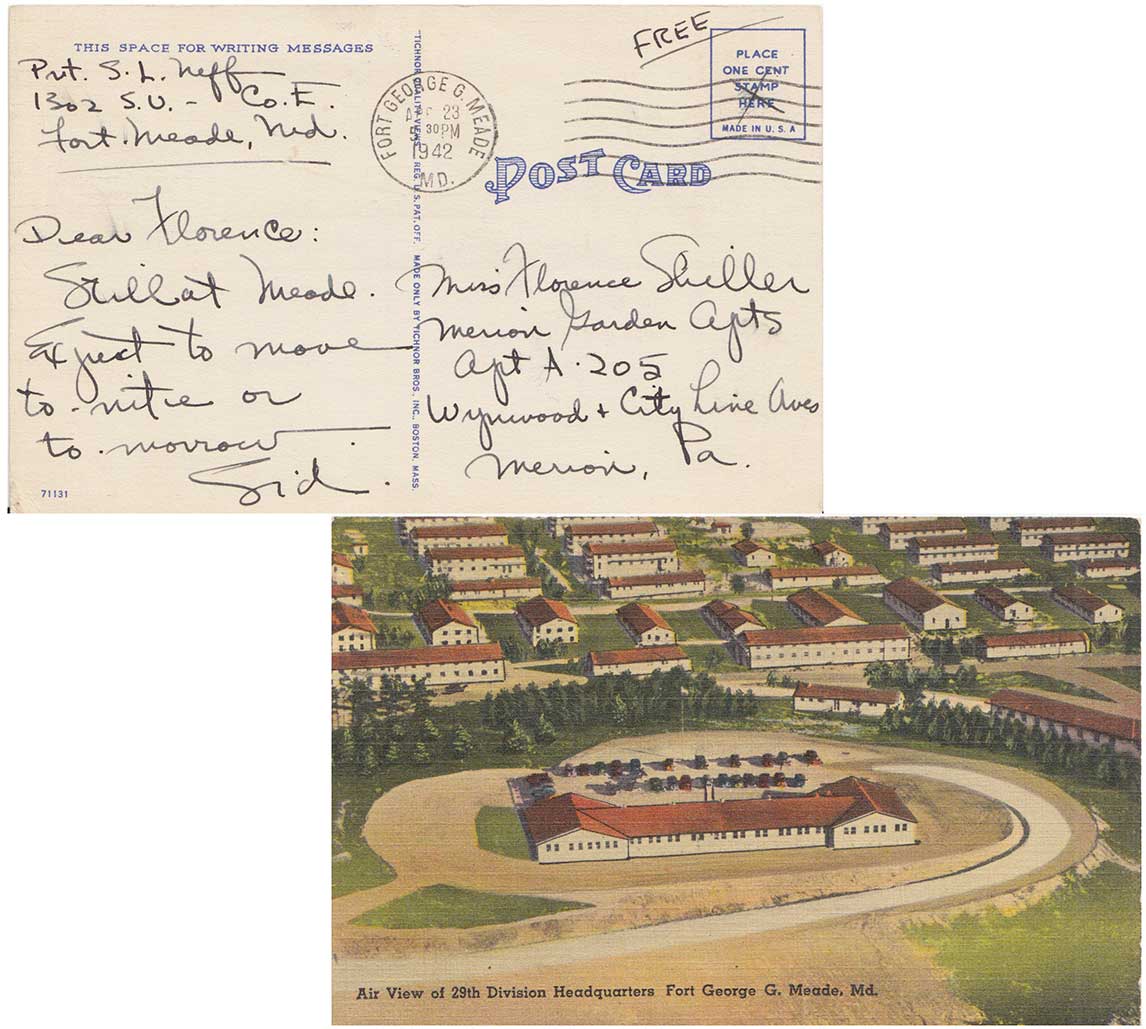 THIS SPACE FOR WRITING MESSAGES
Pvt. S. L. Neff
1302 S.U. - Co. E.
Fort Meade, Md.
Dear Florence:
Still at Meade.
Expect to move
to-nite or
to morrow.
Sid.
71131
TICHNOR QUALITY VIEWS REG. U. S. PAT. OFF. MADE ONLY BY TICHNOR BROS., INC., BOSTON, MASS.
FORT GEORGE G. MEADE
23
30 PM
1942
MD.
FREE
PLACE
ONE CENT
STAMP
HERE
MADE IN U. S. A
POST CARD
Miss Florence Shiller
Merion Garden Apts
Apt A-205
Wynwood + City Line Aves
Merion, Pa.
Air View of 29th Division Headquarters Fort George G. Meade, Md.